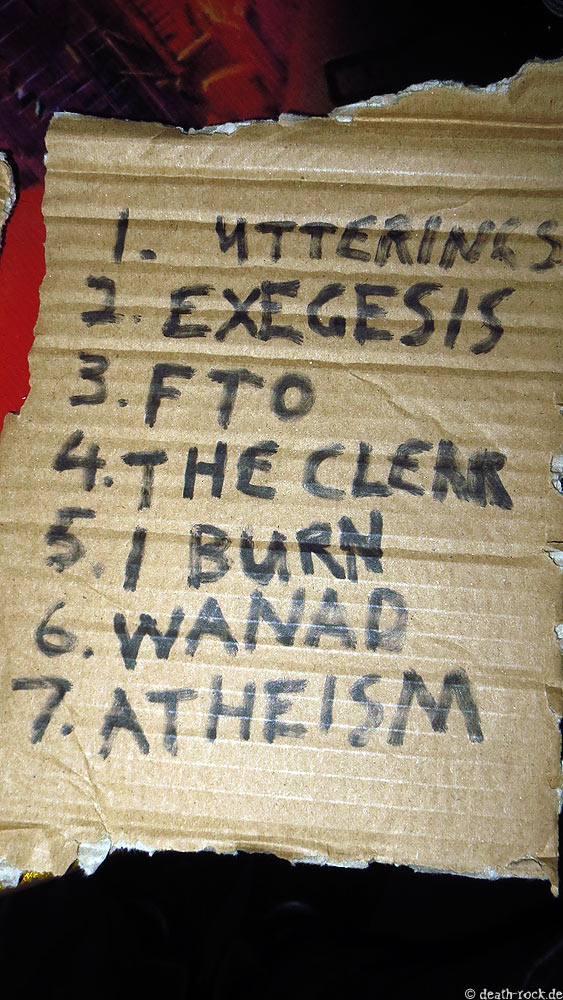 1. UTTERINGS
2. EXEGESIS
3. FTO
4. THE CLEAR
5. I BURN
6. WANAD
7. ATHEISM
© death-rock.de